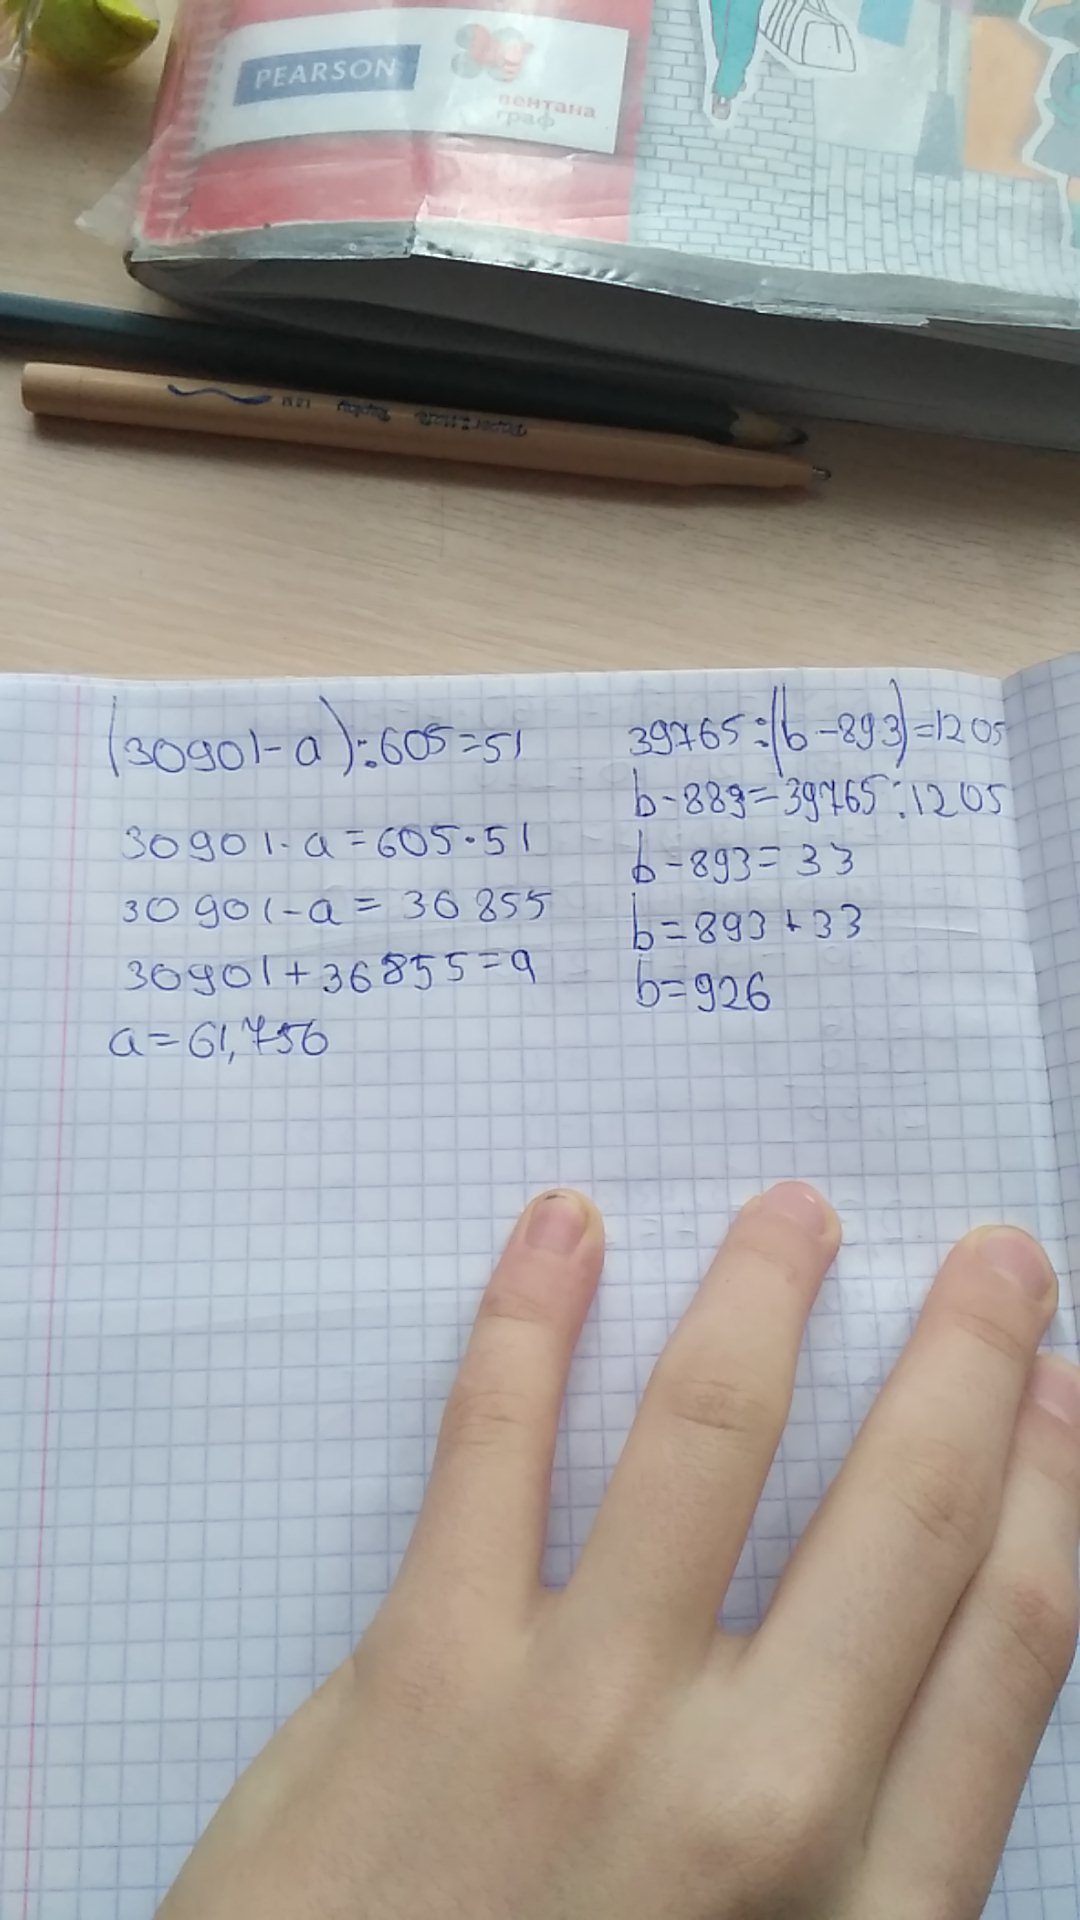 PEARSON
вентана
граф
(30901-a):605=51
30901-a=605·51
30901-a=36855
30901+36855=9
a=61,756
39765:(b-893)=1205
b-889=39765:1205
b-893=33
b=893+33
b=926